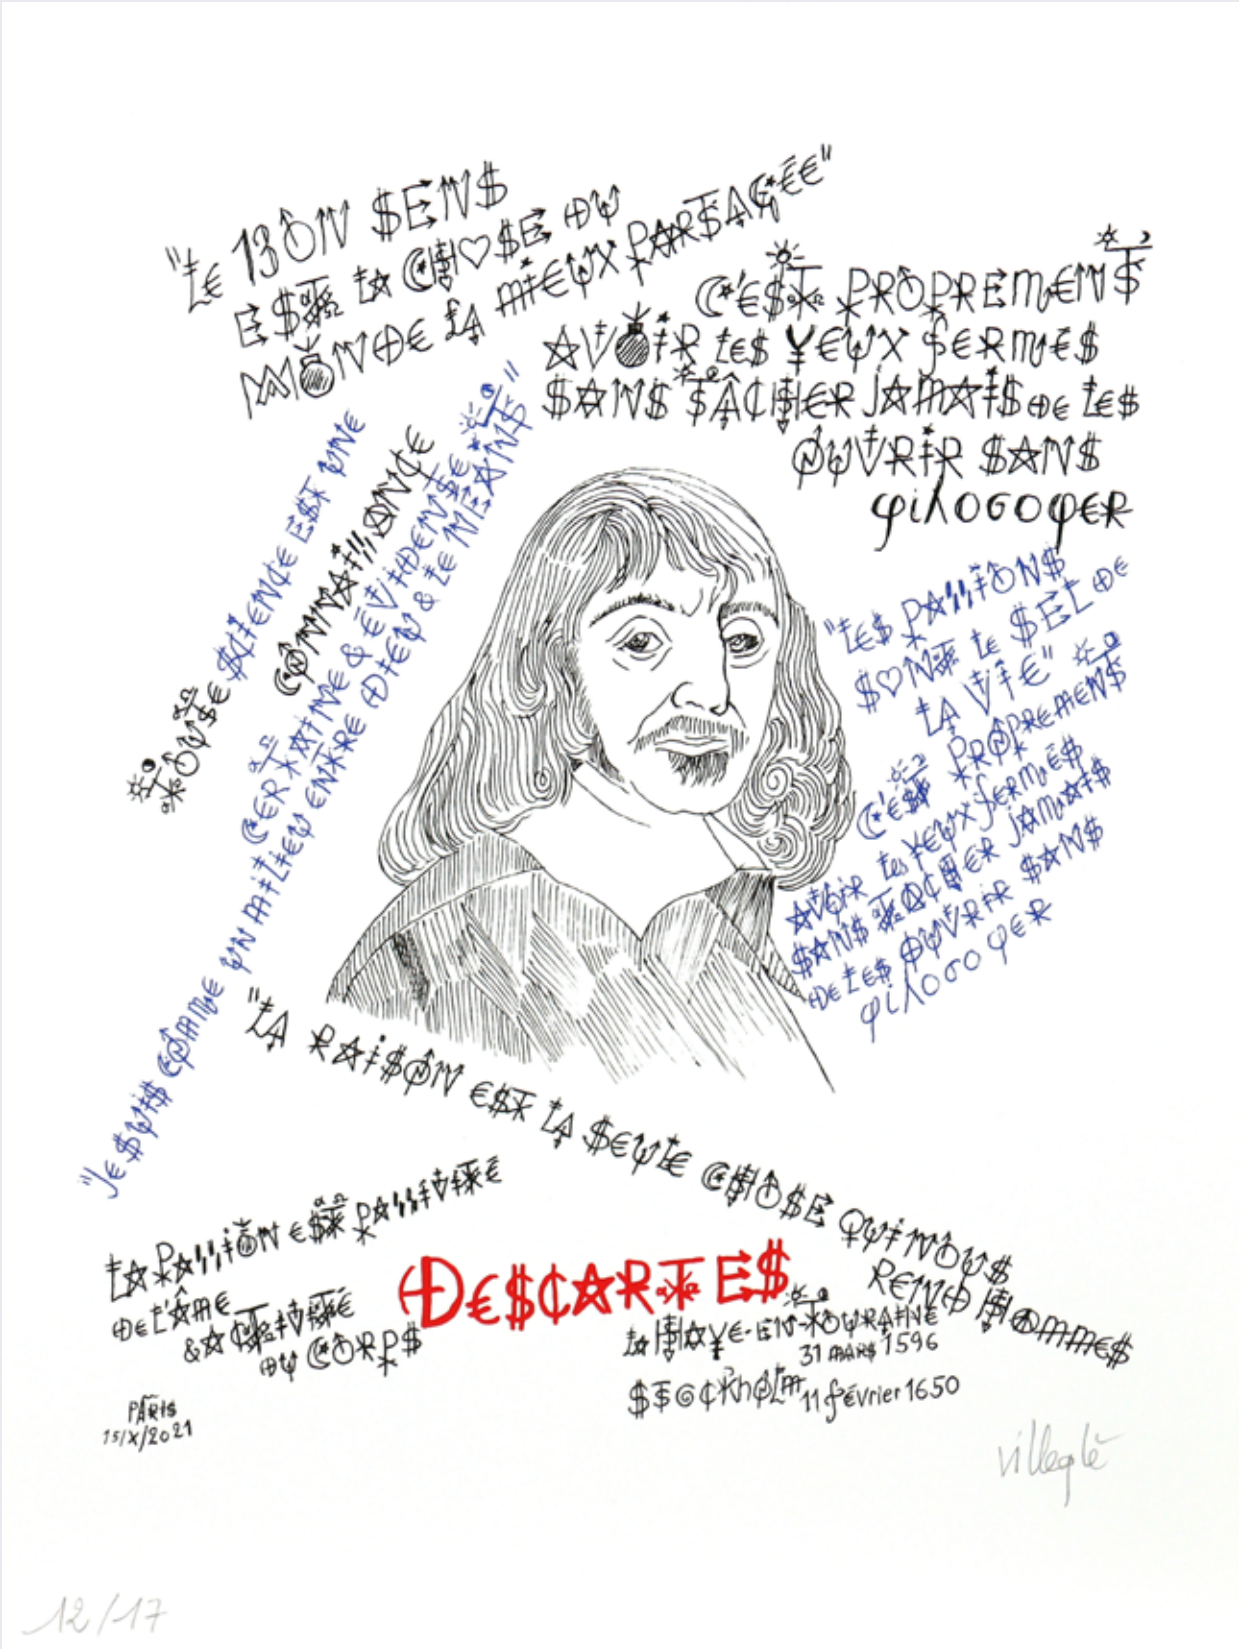 "LE BON SENS
EST LA CHOSE DU
MONDE LA MIEUX PARTAGÉE"
C'EST PROPREMENT
AVOIR LES YEUX FERMÉS
SANS TÂCHER JAMAIS DE LES
OUVRIR SANS
φiλOσOφER
TOUTE SCIENCE EST UNE
CONNAISSANCE
CERTAINE & ÉVIDENTE
"JE SUIS COMME UN MILIEU ENTRE DIEU & LE NÉANT"
"LES PASSIONS
SONT LE SEL DE
LA VIE"
C'EST PROPREMENT
AVOIR LES YEUX FERMÉS
SANS TACHER JAMAIS
DE LES OUVRIR SANS
φiλOσOφER
"LA RAISON EST LA SEULE CHOSE QUI NOUS
REND HOMMES
LA PASSION EST PASSIVITÉ
DE L'ÂME
& ACTIVITÉ
DU CORPS
DESCARTES
LA HAYE-EN-TOURAINE
31 MARS 1596
STOCKHOLM 11 février 1650
PARIS
15/X/2021
villeglé
12/17